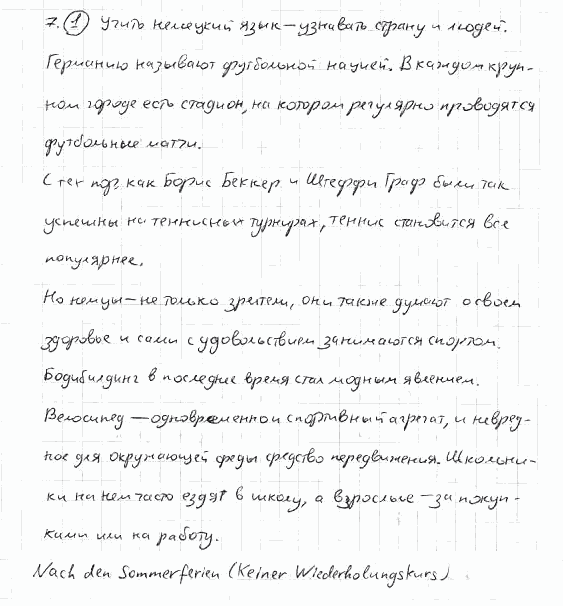 7. ① Учить немецкий язык – узнавать страну и людей.
Германию называют футбольной нацией. В каждом круп-
ном городе есть стадион, на котором регулярно проводятся
футбольные матчи.
С тех пор, как Борис Беккер и Штеффи Граф были так
успешны на теннисных турнирах, теннис становится все
популярнее.
Но немцы – не только зрители, они также думают о своем
здоровье и сами с удовольствием занимаются спортом.
Бодибилдинг в последнее время стал модным явлением.
Велосипед — одновременно и спортивный агрегат, и невред-
ное для окружающей среды средство передвижения. Школьни-
ки на нем часто ездят в школу, а взрослые – за покуп-
ками или на работу.
Nach den Sommerferien (Keiner Wiederholungskurs)